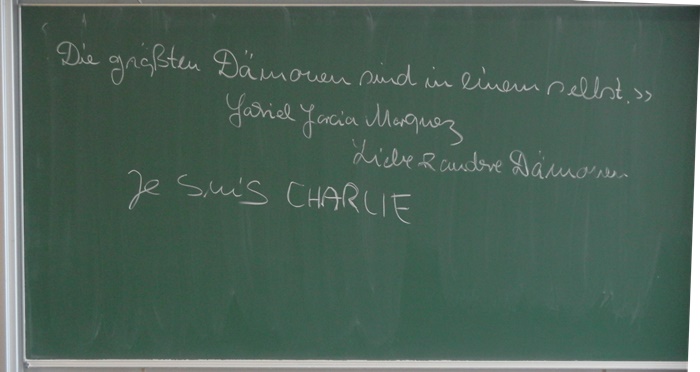 Die größten Dämonen sind in einem selbst.»
Gabriel Garcia Marquez
Liebe & andere Dämonen
Je SuiS CHARLIE